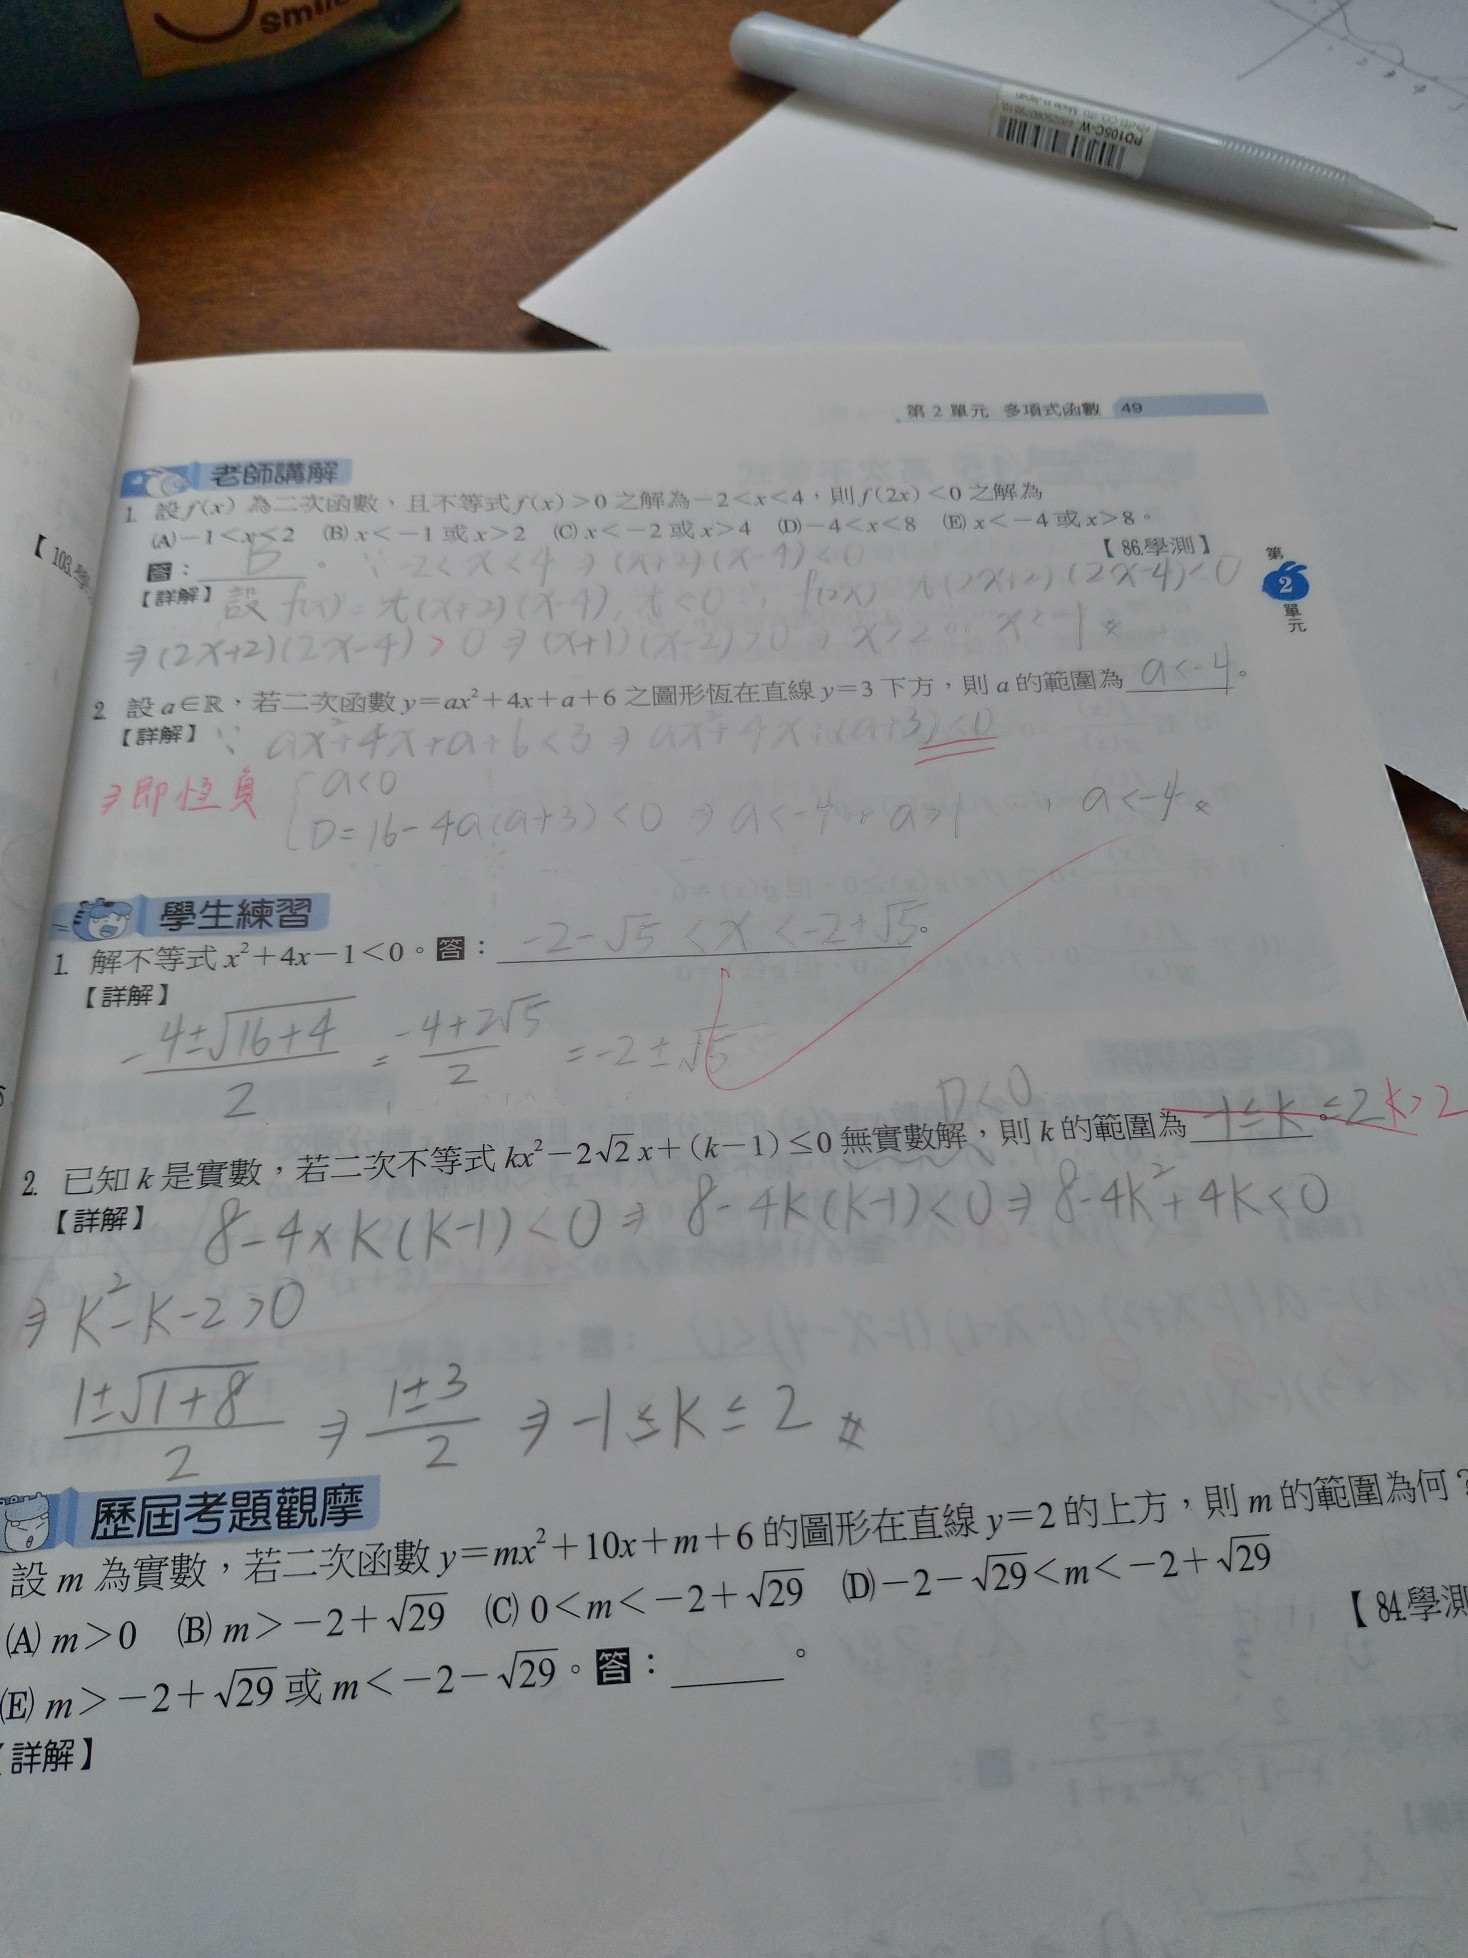 smile
PD105C-W
第 2 單元 多項式函數 49
老師講解
1. 設 f(x) 為二次函數，且不等式 f(x)>0 之解為 -2<x<4，則 f(2x)<0 之解為
(A) -1<x<2 (B) x<-1 或 x>2 (C) x<-2 或 x>4 (D) -4<x<8 (E) x<-4 或 x>8。
【86.學測】
答：B。 ∵ -2<x<4 ⇒ (x+2)(x-4)<0
【詳解】設 f(x)=t(x+2)(x-4), t<0 ∴ f(2x) t(2x+2)(2x-4)<0
⇒(2x+2)(2x-4)>0 ⇒ (x+1)(x-2)>0 ⇒ x>2 or x<-1
第
2
單
元
2. 設 a∈ℝ，若二次函數 y=ax²+4x+a+6 之圖形恆在直線 y=3 下方，則 a 的範圍為 a<-4。
【詳解】∵ ax²+4x+a+6<3 ⇒ ax²+4x+(a+3)<0
⇒即恆負 { a<0
D=16-4a(a+3)<0 ⇒ a<-4 or a>1 ∴ a<-4
學生練習
1. 解不等式 x²+4x-1<0。答：-2-√5<x<-2+√5。
【詳解】
-4±√16+4 / 2 = -4±2√5 / 2 = -2±√5
D<0
2. 已知 k 是實數，若二次不等式 kx²-2√2x+(k-1)≤0 無實數解，則 k 的範圍為 -1≤k≤2 k>2。
【詳解】 8-4×k(k-1)<0 ⇒ 8-4k(k-1)<0 ⇒ 8-4k²+4k<0
⇒ k²-k-2>0
1±√1+8 / 2 ⇒ 1±3 / 2 ⇒ -1≤k≤2
歷屆考題觀摩
設 m 為實數，若二次函數 y=mx²+10x+m+6 的圖形在直線 y=2 的上方，則 m 的範圍為何？
(A) m>0 (B) m>-2+√29 (C) 0<m<-2+√29 (D) -2-√29<m<-2+√29
(E) m>-2+√29 或 m<-2-√29。答：。
【84.學測
【詳解】